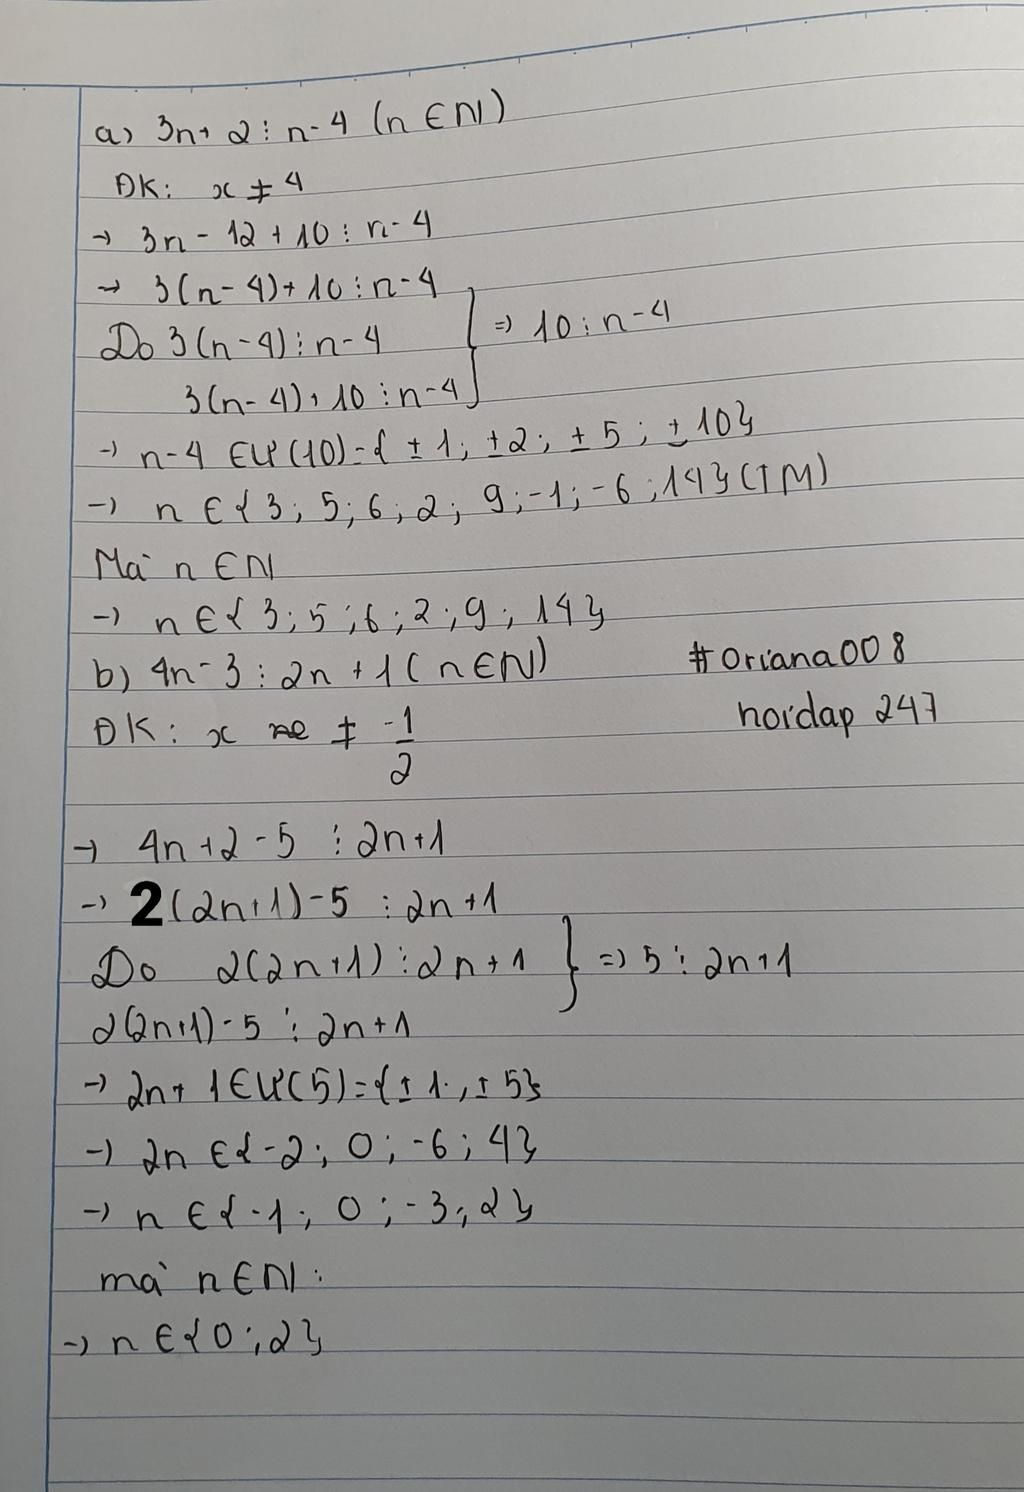 a) 3n + 2 ⋮ n - 4 (n ∈ N)
ĐK: x ≠ 4
→ 3n - 12 + 10 ⋮ n - 4
→ 3(n - 4) + 10 ⋮ n - 4
Do 3(n - 4) ⋮ n - 4 } ⇒ 10 ⋮ n - 4
3(n - 4) + 10 ⋮ n - 4
→ n - 4 ∈ Ư(10) = { ± 1; ±2; ± 5; ± 10}
→ n ∈ { 3; 5; 6; 2; 9; -1; -6; 14} (TM)
Mà n ∈ N
→ n ∈ { 3; 5; 6; 2; 9; 14}
b) 4n - 3 ⋮ 2n + 1 ( n ∈ N) #oriana008
ĐK: x ≠ -1/2 hoidap 247
→ 4n + 2 - 5 ⋮ 2n + 1
→ 2(2n + 1) - 5 ⋮ 2n + 1
Do 2(2n + 1) ⋮ 2n + 1 } ⇒ 5 ⋮ 2n + 1
2(2n + 1) - 5 ⋮ 2n + 1
→ 2n + 1 ∈ Ư(5) = {± 1; ± 5}
→ 2n ∈ {-2; 0; -6; 4}
→ n ∈ {-1; 0; -3; 2}
mà n ∈ N:
→ n ∈ {0; 2}